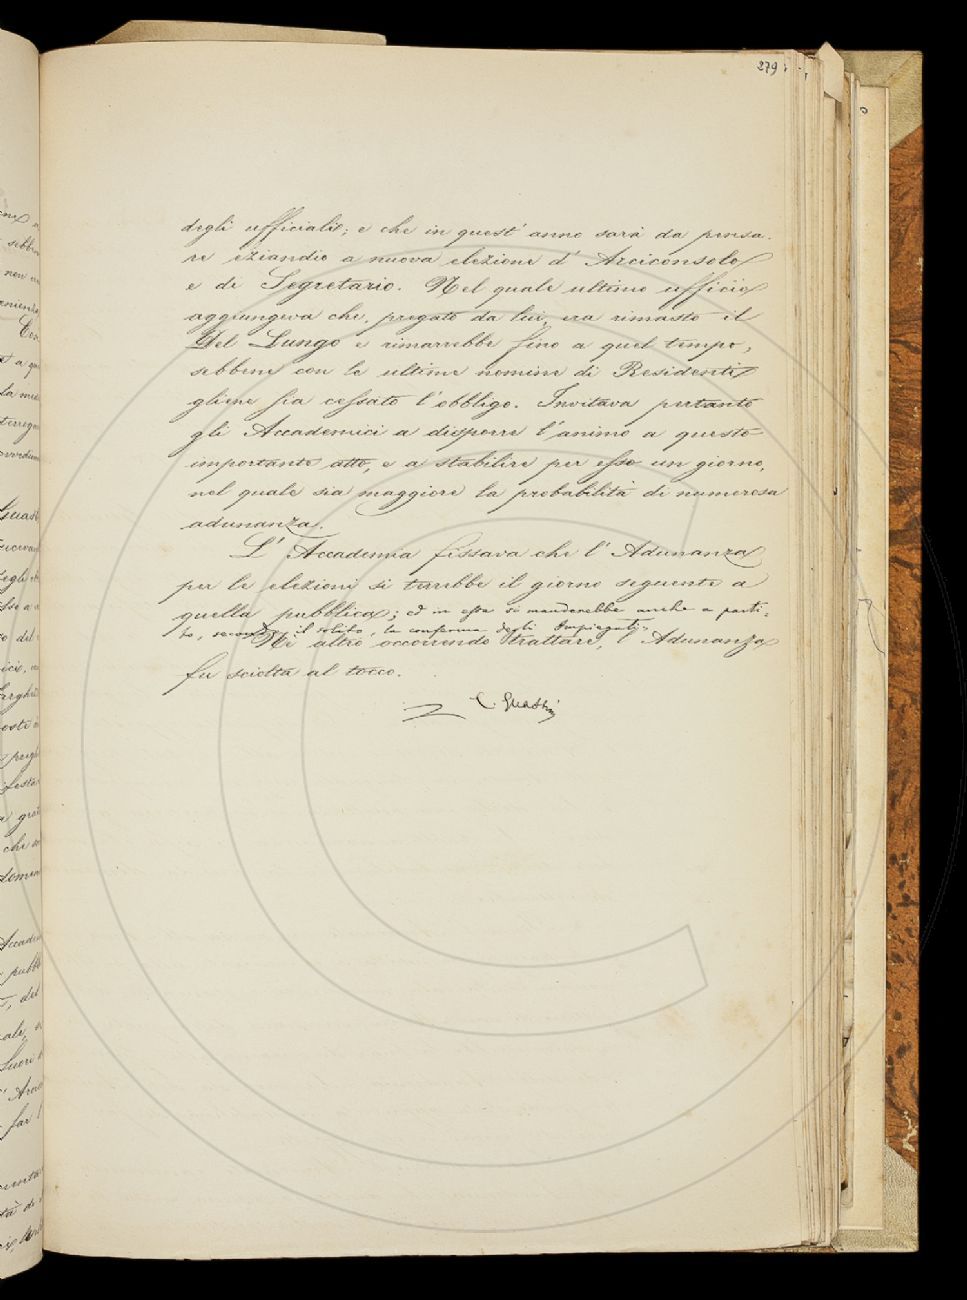 279
degli ufficiali; e che in quest' anno sarà da pensa-
re eziandio a nuova elezione d' Arciconsolo
e di Segretario. Nel quale ultimo ufficio
aggiungeva che, pregato da lui, era rimasto il
Del Lungo e rimarrebbe fino a quel tempo,
sebbene con le ultime nomine di Residenti
gliene sia cessato l'obbligo. Invitava pertanto
gli Accademici a disporre l'animo a questo
importante atto, e a stabilire per esso un giorno,
nel quale sia maggiore la probabilità di numerosa
adunanza.
L' Accademia fissava che l' Adunanza
per le elezioni si terrebbe il giorno seguente a
quella pubblica; ed in essa si manderebbe anche a parti-
to, secondo il solito, la conferma degli Impiegati.
Nè altro occorrendo trattare, l' Adunanza
fu sciolta al tocco.
C. Guasti